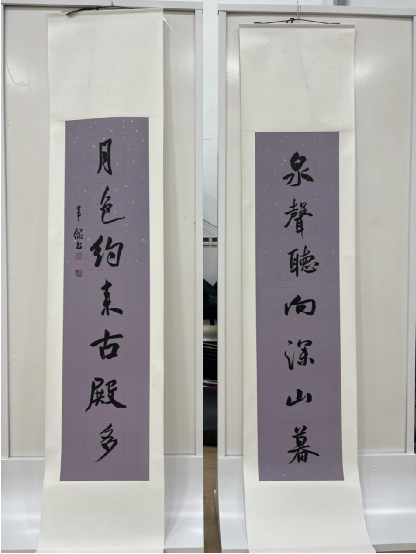 泉聲聽向深山暮
月色約來古殿多